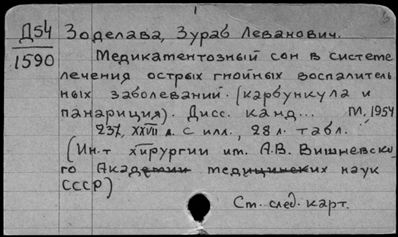 Д54 Зоделава, Зураб Леванович.
1590 Медикаментозный сон в системе
лечения острых гнойных воспалитель
ных заболеваний. (карбункула и
панариция). Дисс. канд... М., 1954
237, XXVII л. с илл., 28 л. табл.
(Ин-т хирургии им. А.В. Вишневско-
го Академии медицинских наук
СССР)
См. след. карт.